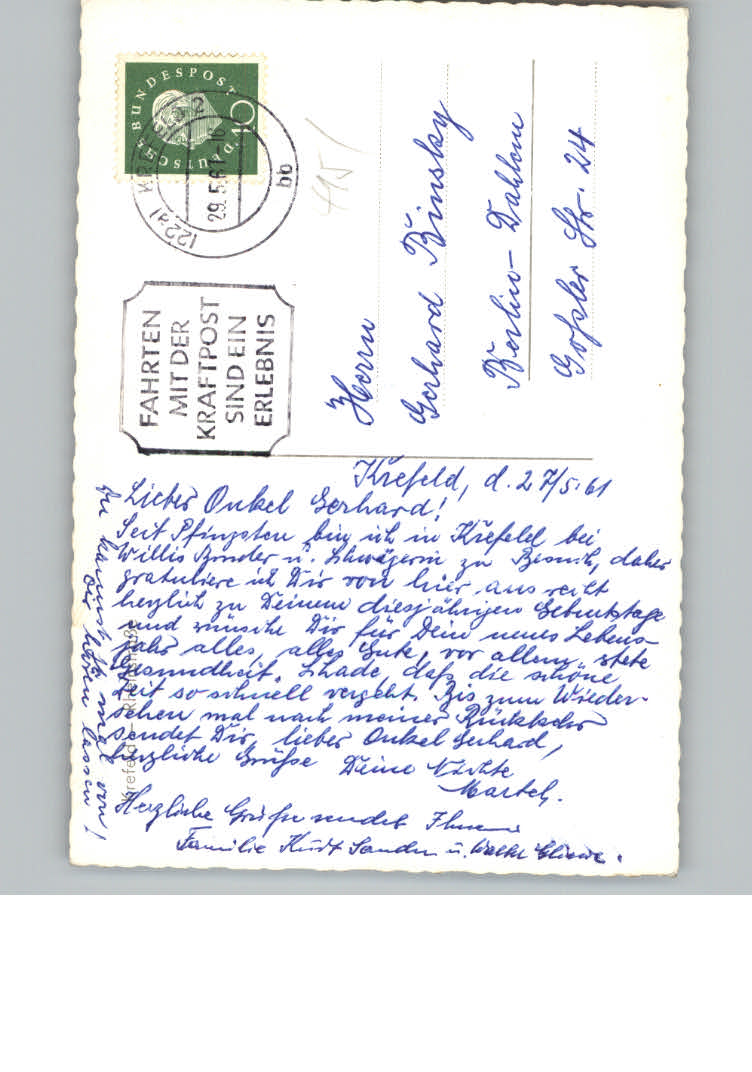 DEUTSCHE BUNDESPOST
(22a) KREFELD 2
29.5.61-16
bb
FAHRTEN
MIT DER
KRAFTPOST
SIND EIN
ERLEBNIS
Herrn
Gerhard Binsky
Berlin-Dahlem
Goßler Str. 24
Krefeld, d. 27/5.61
Lieber Onkel Gerhard!
Seit Pfingsten bin ich in Krefeld bei
Willis Bruder u. Schwägerin zu Besuch, daher
gratuliere ich Dir von hier aus recht
herzlich zu Deinem diesjährigen Geburtstage
und wünsche Dir für Dein neues Lebens-
jahr alles, alles Gute, vor allem stete
Gesundheit. Schade, daß die schöne
Zeit so schnell vergeht. Bis zum Wieder-
sehen mal nach meiner Rückkehr
sendet Dir, lieber Onkel Gerhard,
herzliche Grüße Deine Nichte
Martel.
Herzliche Grüße sendet Ihnen
Familie Kurt u.
Du kannst ja mal von
Dir hören lassen!
Krefeld - Rheinstraße